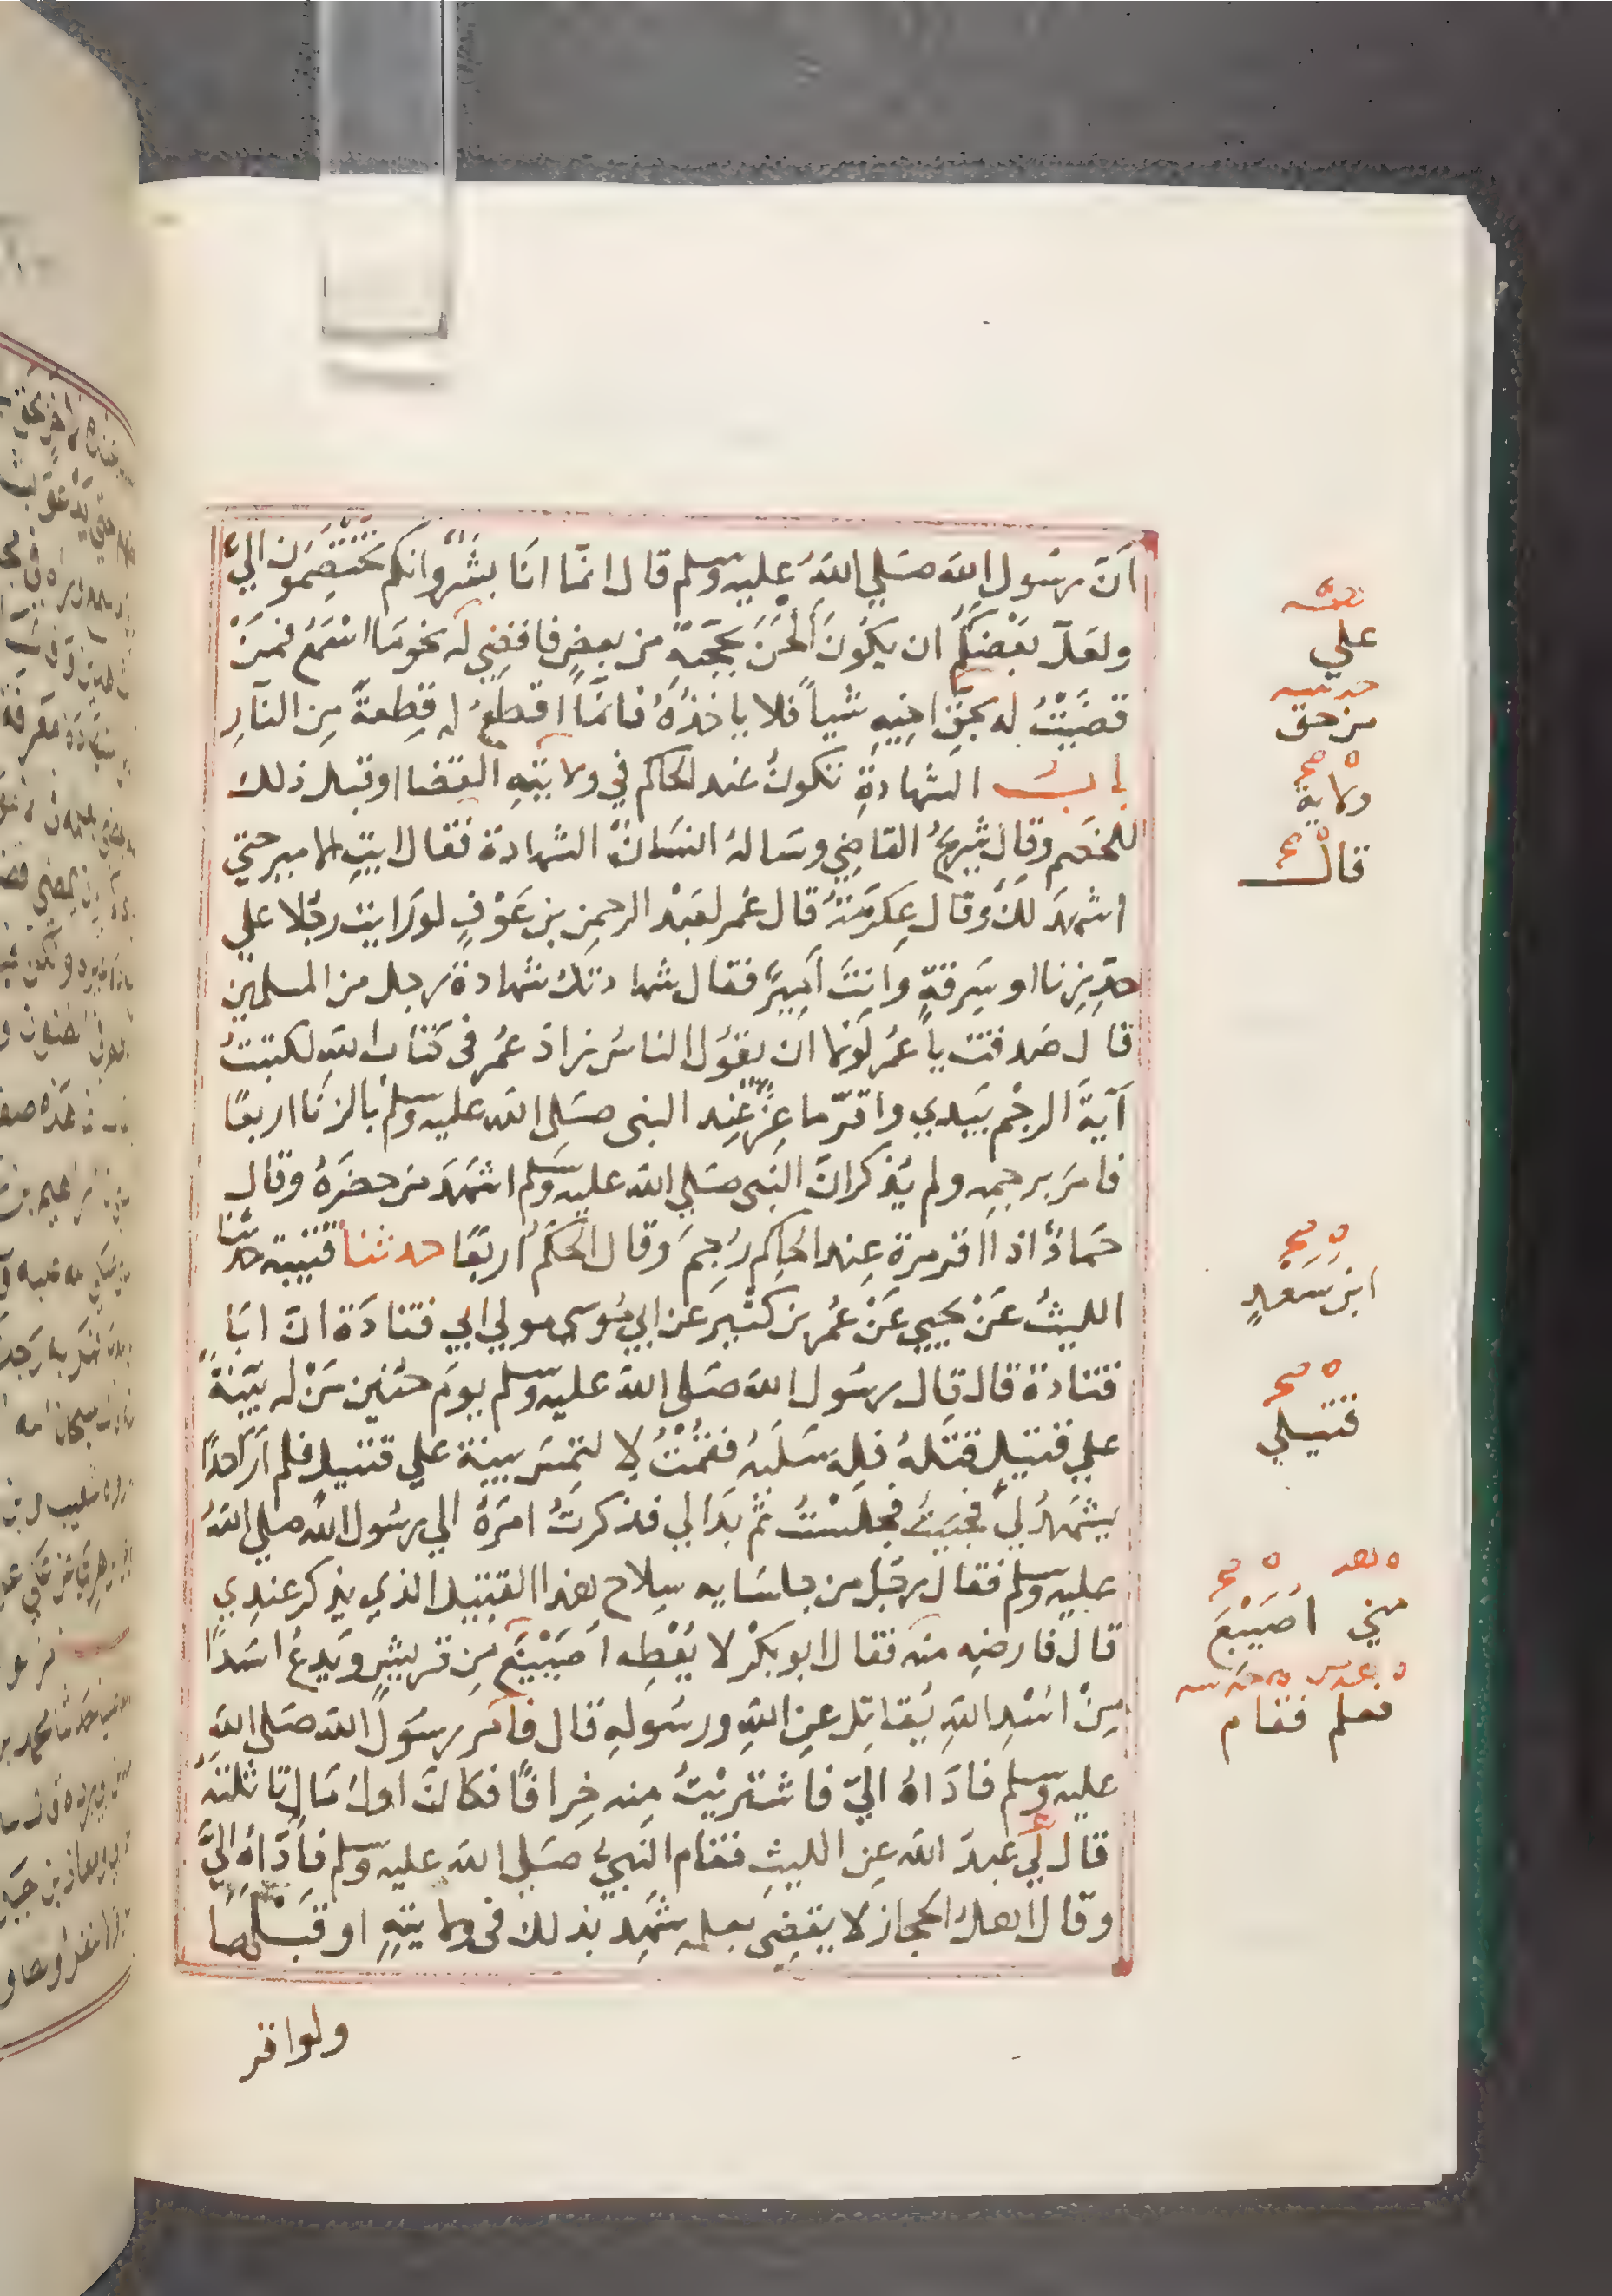 اَنّ رسُول الله صَلي اللهُ عليه وسلم قال انمّا انَا بشَرٌ وانكم تختَصِمُون اليّ
ولعَلّ بَعْضَكُم ان يكُونَ اَلْحَنَ بحُجَّتِهِ من بعضٍ فاقضِي له نحو مَا اسْمَعُ فمَنْ
قضَيْتُ له بحَقِّ اخِيهِ شياً فلا ياخذْهُ فانمّا اقطَعُ له قِطعةً مِن النّارِ
باب الشهادةِ تكونُ عند الحاكم في ولايتِهِ القضا اوقبل ذلك
للخصم وقال شُريحُ القاضِي وسَاله انسَانٌ الشهادة فقال ايتِ الامير حتي
اشهدَ لكَ وقال عِكرمَةُ قال عُمر لعَبْد الرحمِن بن عَوْفٍ لو رَايت رجُلا علي
حدٍّ زنا او سَرِقةٍ وانتَ اَميرٌ فقال شهادتك شهادة رجل من المسلمين
قال صَدقت يا عمُر لَولا ان يقوُل الناسُ زادَ عمُر فى كتاب الله لكتبتُ
آيةَ الرجْم بيَدي واقرّ ماعِزٌ عِنْد النبى صَلى الله عليه وسلم بالزنَا اربعًا
فامَر برجمِه ولم يُذكر انّ النَبى صَلي الله عليه وسَلم اشهَدَ مَن حضَرَهُ وقال
حَمادٌ اذا اقر مرة عِند الحاكِم رُجِمَ وقال الحكَمُ اربَعًا حدثنا قتيبة حدثنا
الليثُ عَنْ يحيي عَنْ عمُر بن كثيرَ عن ابي مُوسي مولي ابي قتادَة انّ ابَا
قتادة قال قال رسُول الله صَلى الله عليه وسلم يومَ حنُين مَنْ له بيّنةٌ
علي قتيلٍ قتَلهُ فله سَلَبُه فقمُتُ لالتمسَ بينة علي قتيل فلم اَرَ احَدًا
يشهَدُ لي فجلَسْتُ ثم بدَا لي فذكرتُ امَرهُ الي رسُول الله صلي اللهُ
عليه وسلم فقال رجُل من جلسَايه سِلاح هذا القتِيل الذي يذكر عندِي
قال فارضِه منه فقال ابو بكْر لا يُعْطِه اصَيْبِغَ مِن قريشٍ ويَدعُ اسَدًا
مِنْ اسُدِ اللهِ يُقاتِل عنِ اللهِ ورسُولهِ قال فامَر رسوَل الله صَلى الله
عليه وسلم فادَاهُ اليّ فاشتريْتُ مِنه خِرافًا فكانَ اول مَالٍ تاثلتهُ
قال لي عبدَ الله عِن الليثِ فقام النَبيُ صَلي الله عليه وسلم فادّاهُ اليَّ
وقال اهل الحجاز لا يقضِي بعلمه شهِد بذلك فى ولايتهِ او قبَلهَا
ولو اقر
علي
من حق
ولاية
قال
ابن سَعْدٍ
قتيلي
مني اصَيْبِغَ
فعلم فقام